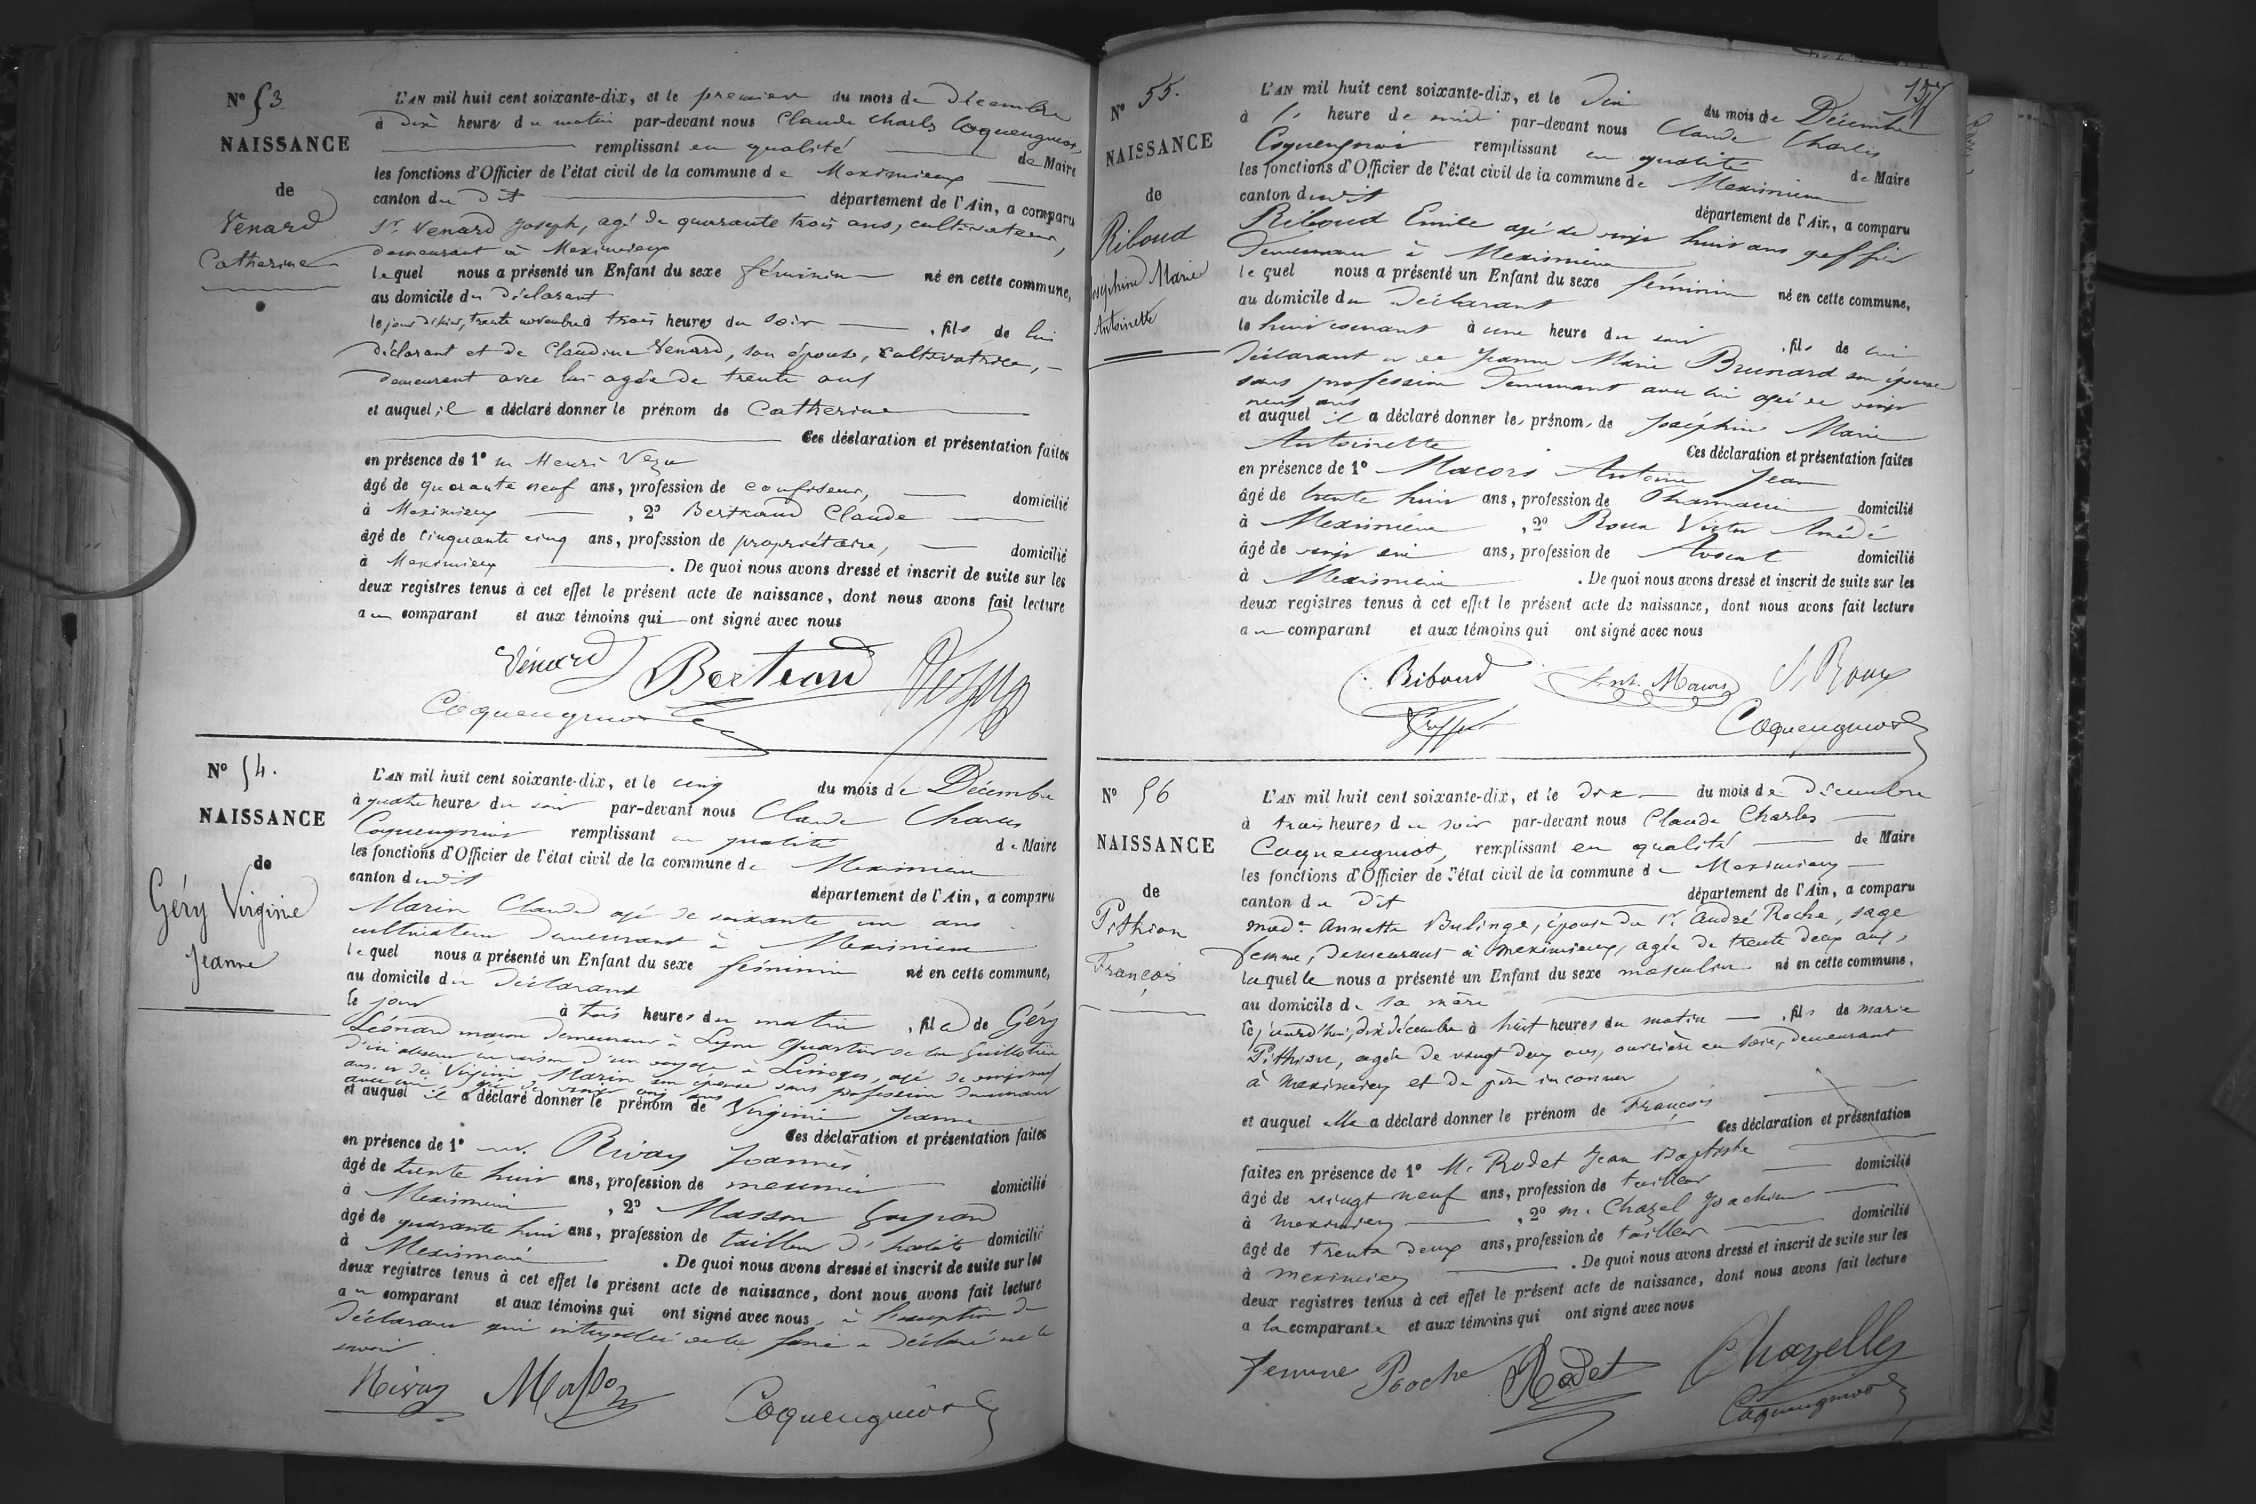 N° 53
NAISSANCE
de
Venard
Catherine
L'AN mil huit cent soixante-dix, et le premier du mois de Décembre
à dix heures du matin par-devant nous Claude Charles Coquengniot
remplissant en qualité de Maire
les fonctions d'Officier de l'état civil de la commune de Meximieux
canton du dit département de l'Ain, a comparu
Sr. Venard Joseph, agé de quarante trois ans, cultivateur,
demeurant à Meximieux
lequel nous a présenté un Enfant du sexe féminin né en cette commune,
au domicile du déclarant
le jour d'hier, trente novembre à trois heures du soir , fils de lui
déclarant et de Claudine Venard, son épouse, cultivatrice,
demeurant avec lui agée de trente ans
et auquel il a déclaré donner le prénom de Catherine
Ces déclaration et présentation faites
en présence de 1° Henri
âgé de quarante neuf ans, profession de confiseur, domicilié
à Meximieux , 2° Bertrand Claude
âgé de cinquante cinq ans, profession de propriétaire, domicilié
à Meximieux . De quoi nous avons dressé et inscrit de suite sur les
deux registres tenus à cet effet le présent acte de naissance, dont nous avons fait lecture
au comparant et aux témoins qui ont signé avec nous
Vénard Bertrand
Coquengniot
N° 54.
NAISSANCE
de
Géry Virginie
Jeanne
L'AN mil huit cent soixante-dix, et le cinq du mois de Décembre
à quatre heures du soir par-devant nous Claude Charles
Coquengniot remplissant en qualité de Maire
les fonctions d'Officier de l'état civil de la commune de Meximieux
canton dudit département de l'Ain, a comparu
Marin Claude agé de soixante un ans
cultivateur demeurant à Meximieux
lequel nous a présenté un Enfant du sexe féminin né en cette commune,
au domicile du déclarant
le jour à trois heures du matin , fille de Géry
Léonard maçon demeurant à Lyon quartier de la Guillotière
d'ici absent en raison d'un voyage à Limoges, agé de vingt neuf
ans et de Virginie Marin son épouse sans profession demeurant
avec lui agée de vingt cinq ans
et auquel il a déclaré donner le prénom de Virginie Jeanne
Ces déclaration et présentation faites
en présence de 1° Mr. Rivay Joannès
âgé de trente huit ans, profession de meunier domicilié
à Meximieux , 2° Masson
âgé de quarante huit ans, profession de tailleur d'habits domicilié
à Meximieux . De quoi nous avons dressé et inscrit de suite sur les
deux registres tenus à cet effet le présent acte de naissance, dont nous avons fait lecture
au comparant et aux témoins qui ont signé avec nous, à l'exception du
déclarant qui interpellé de le faire a déclaré ne le
savoir.
Rivay Masson
Coquengniot
157
N° 55.
NAISSANCE
de
Riboud
Joséphine Marie
Antoinette
L'AN mil huit cent soixante-dix, et le dix du mois de Décembre
à heure de midi par-devant nous Claude Charles
Coquengniot remplissant en qualité de Maire
les fonctions d'Officier de l'état civil de la commune de Meximieux
canton dudit département de l'Ain, a comparu
Riboud Emile agé de vingt huit ans greffier
demeurant à Meximieux
lequel nous a présenté un Enfant du sexe féminin né en cette commune,
au domicile du déclarant
le huit courant à une heure du soir , fils de lui
déclarant et de Jeanne Marie Brunard son épouse
sans profession demeurant avec lui agée de vingt
neuf ans
et auquel il a déclaré donner les prénoms de Joséphine Marie
Antoinette Ces déclaration et présentation faites
en présence de 1° Macors Antoine Jean
âgé de trente huit ans, profession de Pharmacien domicilié
à Meximieux , 2° Roux Victor Amédé
âgé de vingt ans, profession de Avocat domicilié
à Meximieux . De quoi nous avons dressé et inscrit de suite sur les
deux registres tenus à cet effet le présent acte de naissance, dont nous avons fait lecture
au comparant et aux témoins qui ont signé avec nous
Riboud Ant. Macors V. Roux
Greffier Coquengniot
N° 56
NAISSANCE
de
Pithion
François
L'AN mil huit cent soixante-dix, et le dix du mois de décembre
à trois heures du soir par-devant nous Claude Charles
Coquengniot, remplissant en qualité de Maire
les fonctions d'Officier de l'état civil de la commune de Meximieux
canton du dit département de l'Ain, a comparu
made Annette Bulinge, épouse du Sr. André Roche, sage
femme, demeurant à meximieux, agée de trente deux ans,
laquelle nous a présenté un Enfant du sexe masculin né en cette commune,
au domicile de sa mère
le jourd'hui, dix décembre à huit heures du matin , fils de marie
Pithion, agée de vingt deux ans, ouvrière en soie, demeurant
à meximieux et de père inconnu
et auquel elle a déclaré donner le prénom de François
Ces déclaration et présentation
faites en présence de 1° Mr. Rodet Jean Baptiste
âgé de vingt neuf ans, profession de tailleur domicilié
à meximieux , 2° m. Chazel Joachim
âgé de trente deux ans, profession de tailleur domicilié
à meximieux . De quoi nous avons dressé et inscrit de suite sur les
deux registres tenus à cet effet le présent acte de naissance, dont nous avons fait lecture
a la comparante et aux témoins qui ont signé avec nous
femme Roche Rodet Chazelles
Coquengniot